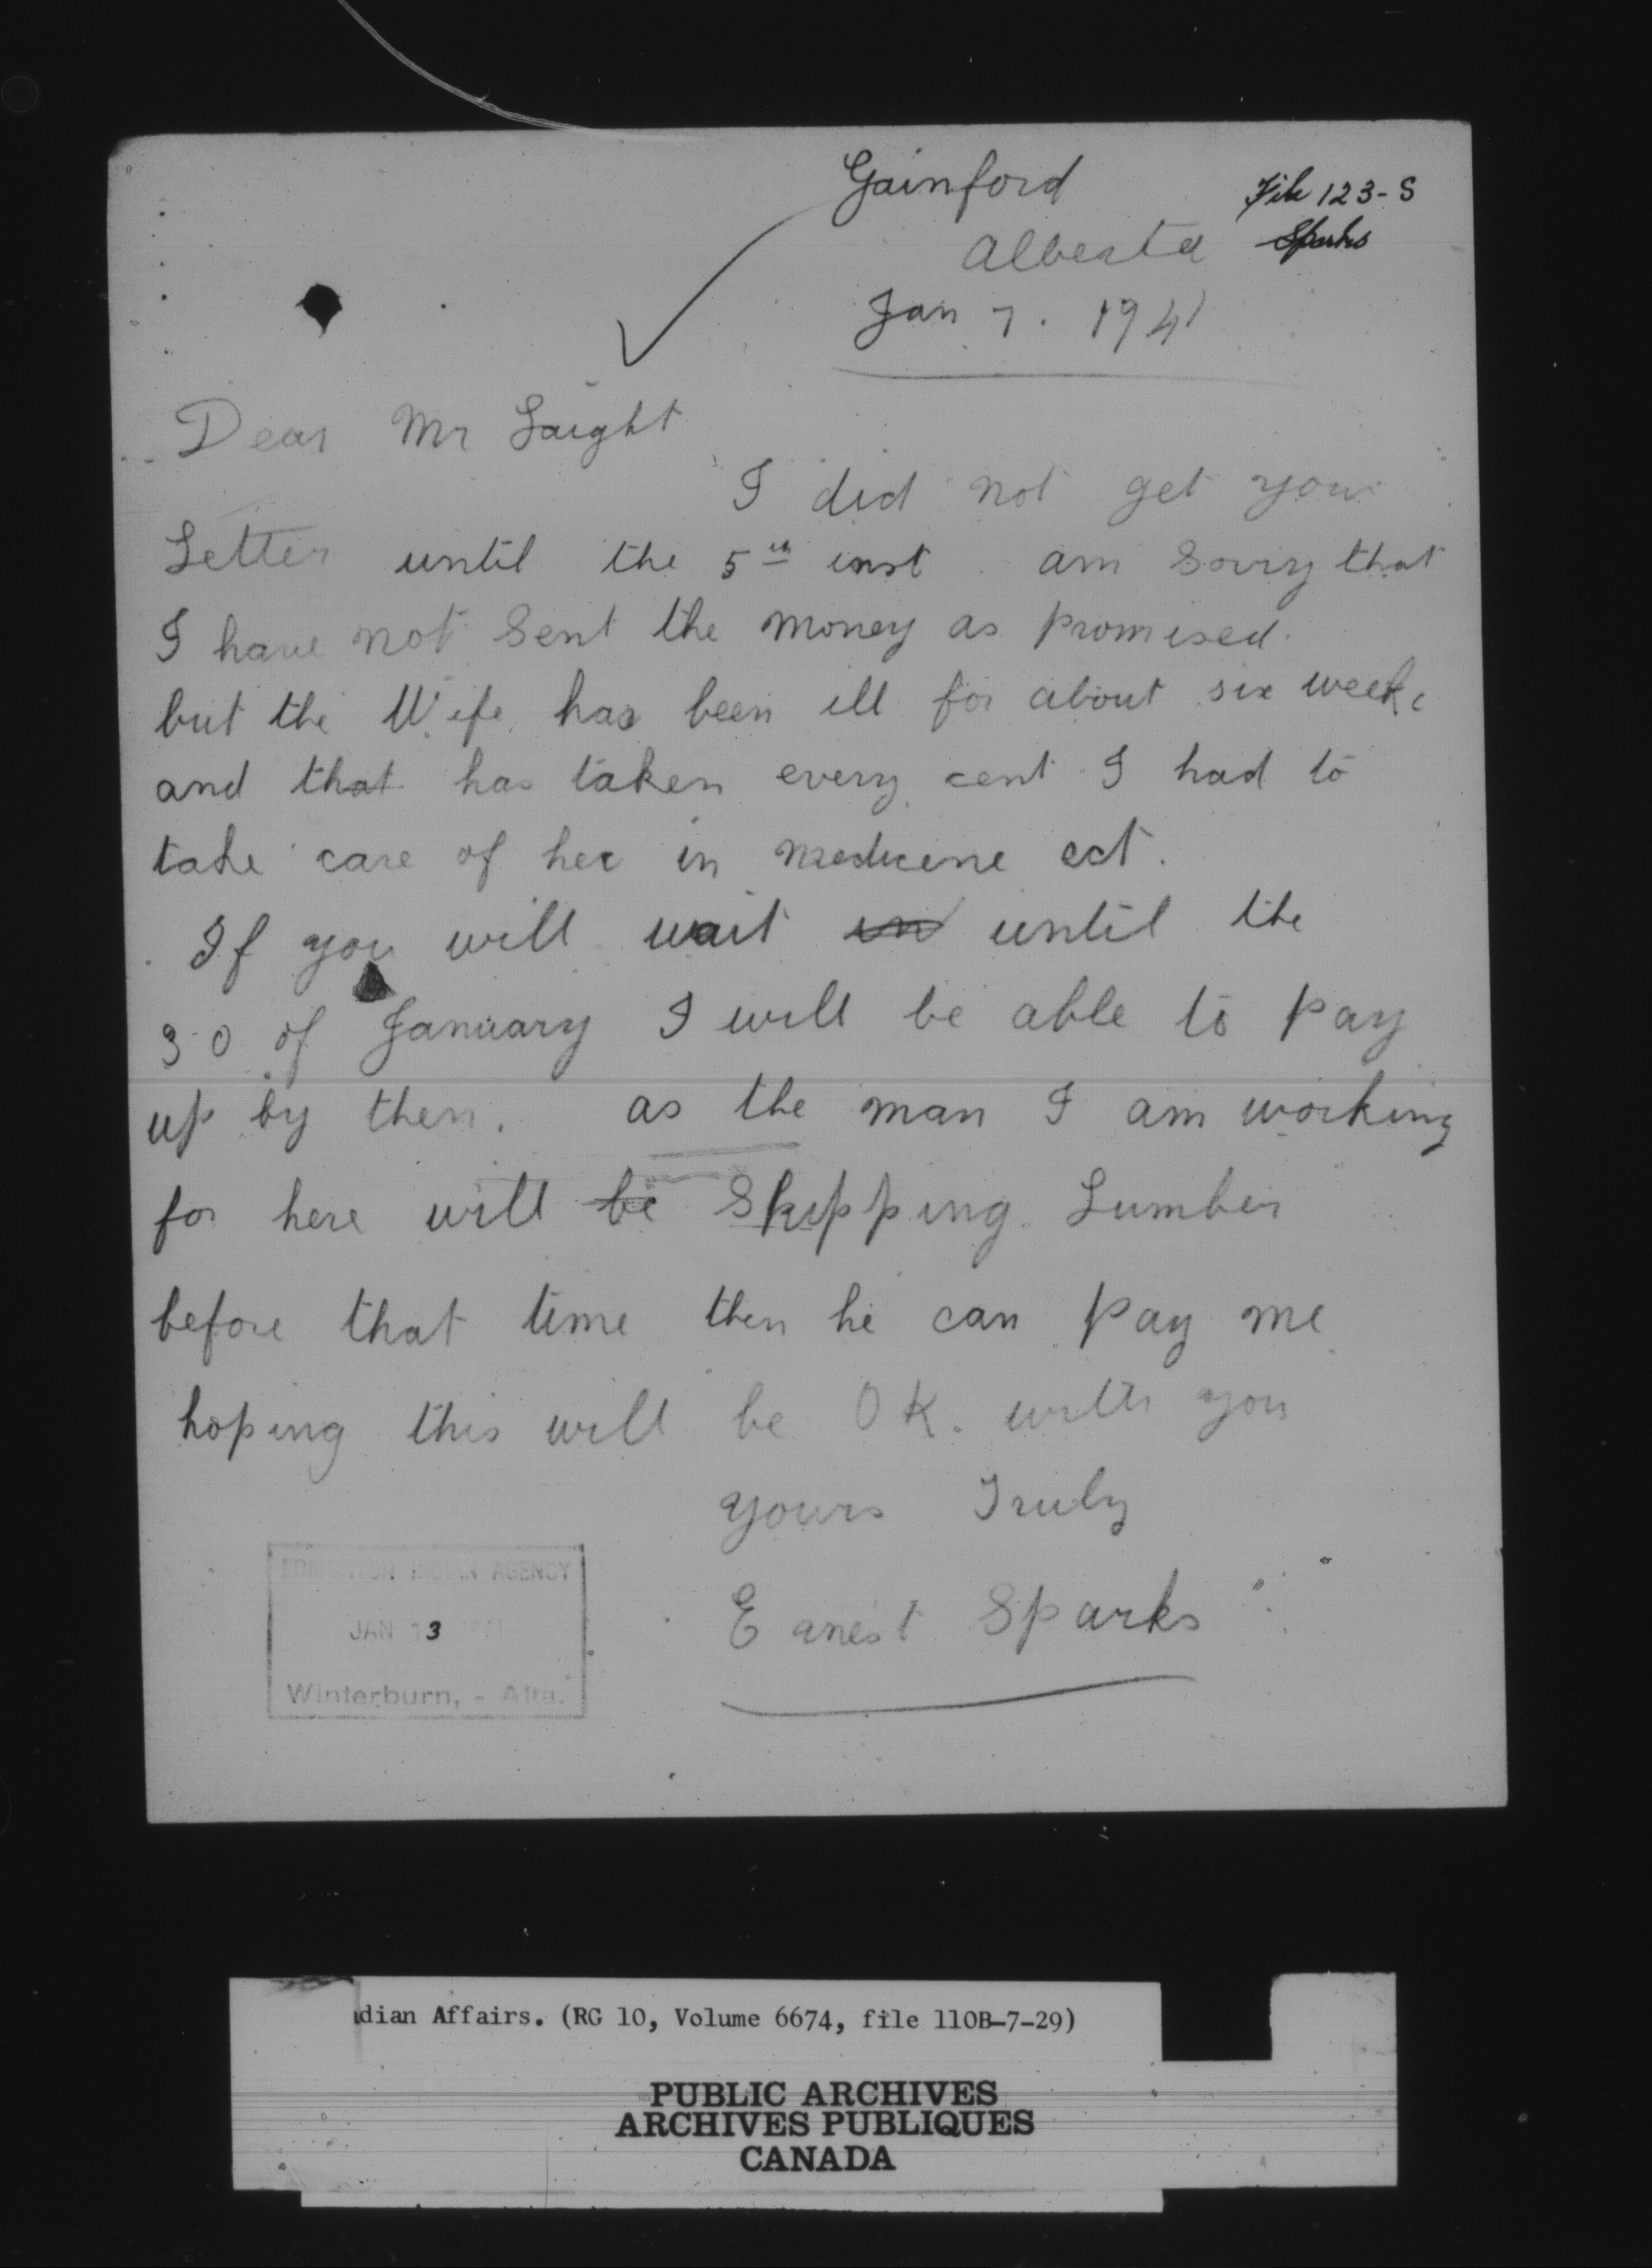 Gainford
File 123-S
Alberta
Sparks
Jan 7. 1941
Dear Mr Laight
I did not get your
Letter until the 5th inst. am Sorry that
I have not Sent the money as promised.
but the Wife has been ill for about six weeks
and that has taken every cent I had to
take care of her in medicene ect.
If you will wait un until the
30 of January I will be able to pay
up by then. as the man I am working
for here will be Shipping Lumber
before that time then he can pay me
hoping this will be OK. with you
yours Truly
Earnest Sparks
EDMONTON INDIAN AGENCY
JAN 13
Winterburn, - Alta.
dian Affairs. (RG 10, Volume 6674, file 110B-7-29)
PUBLIC ARCHIVES
ARCHIVES PUBLIQUES
CANADA